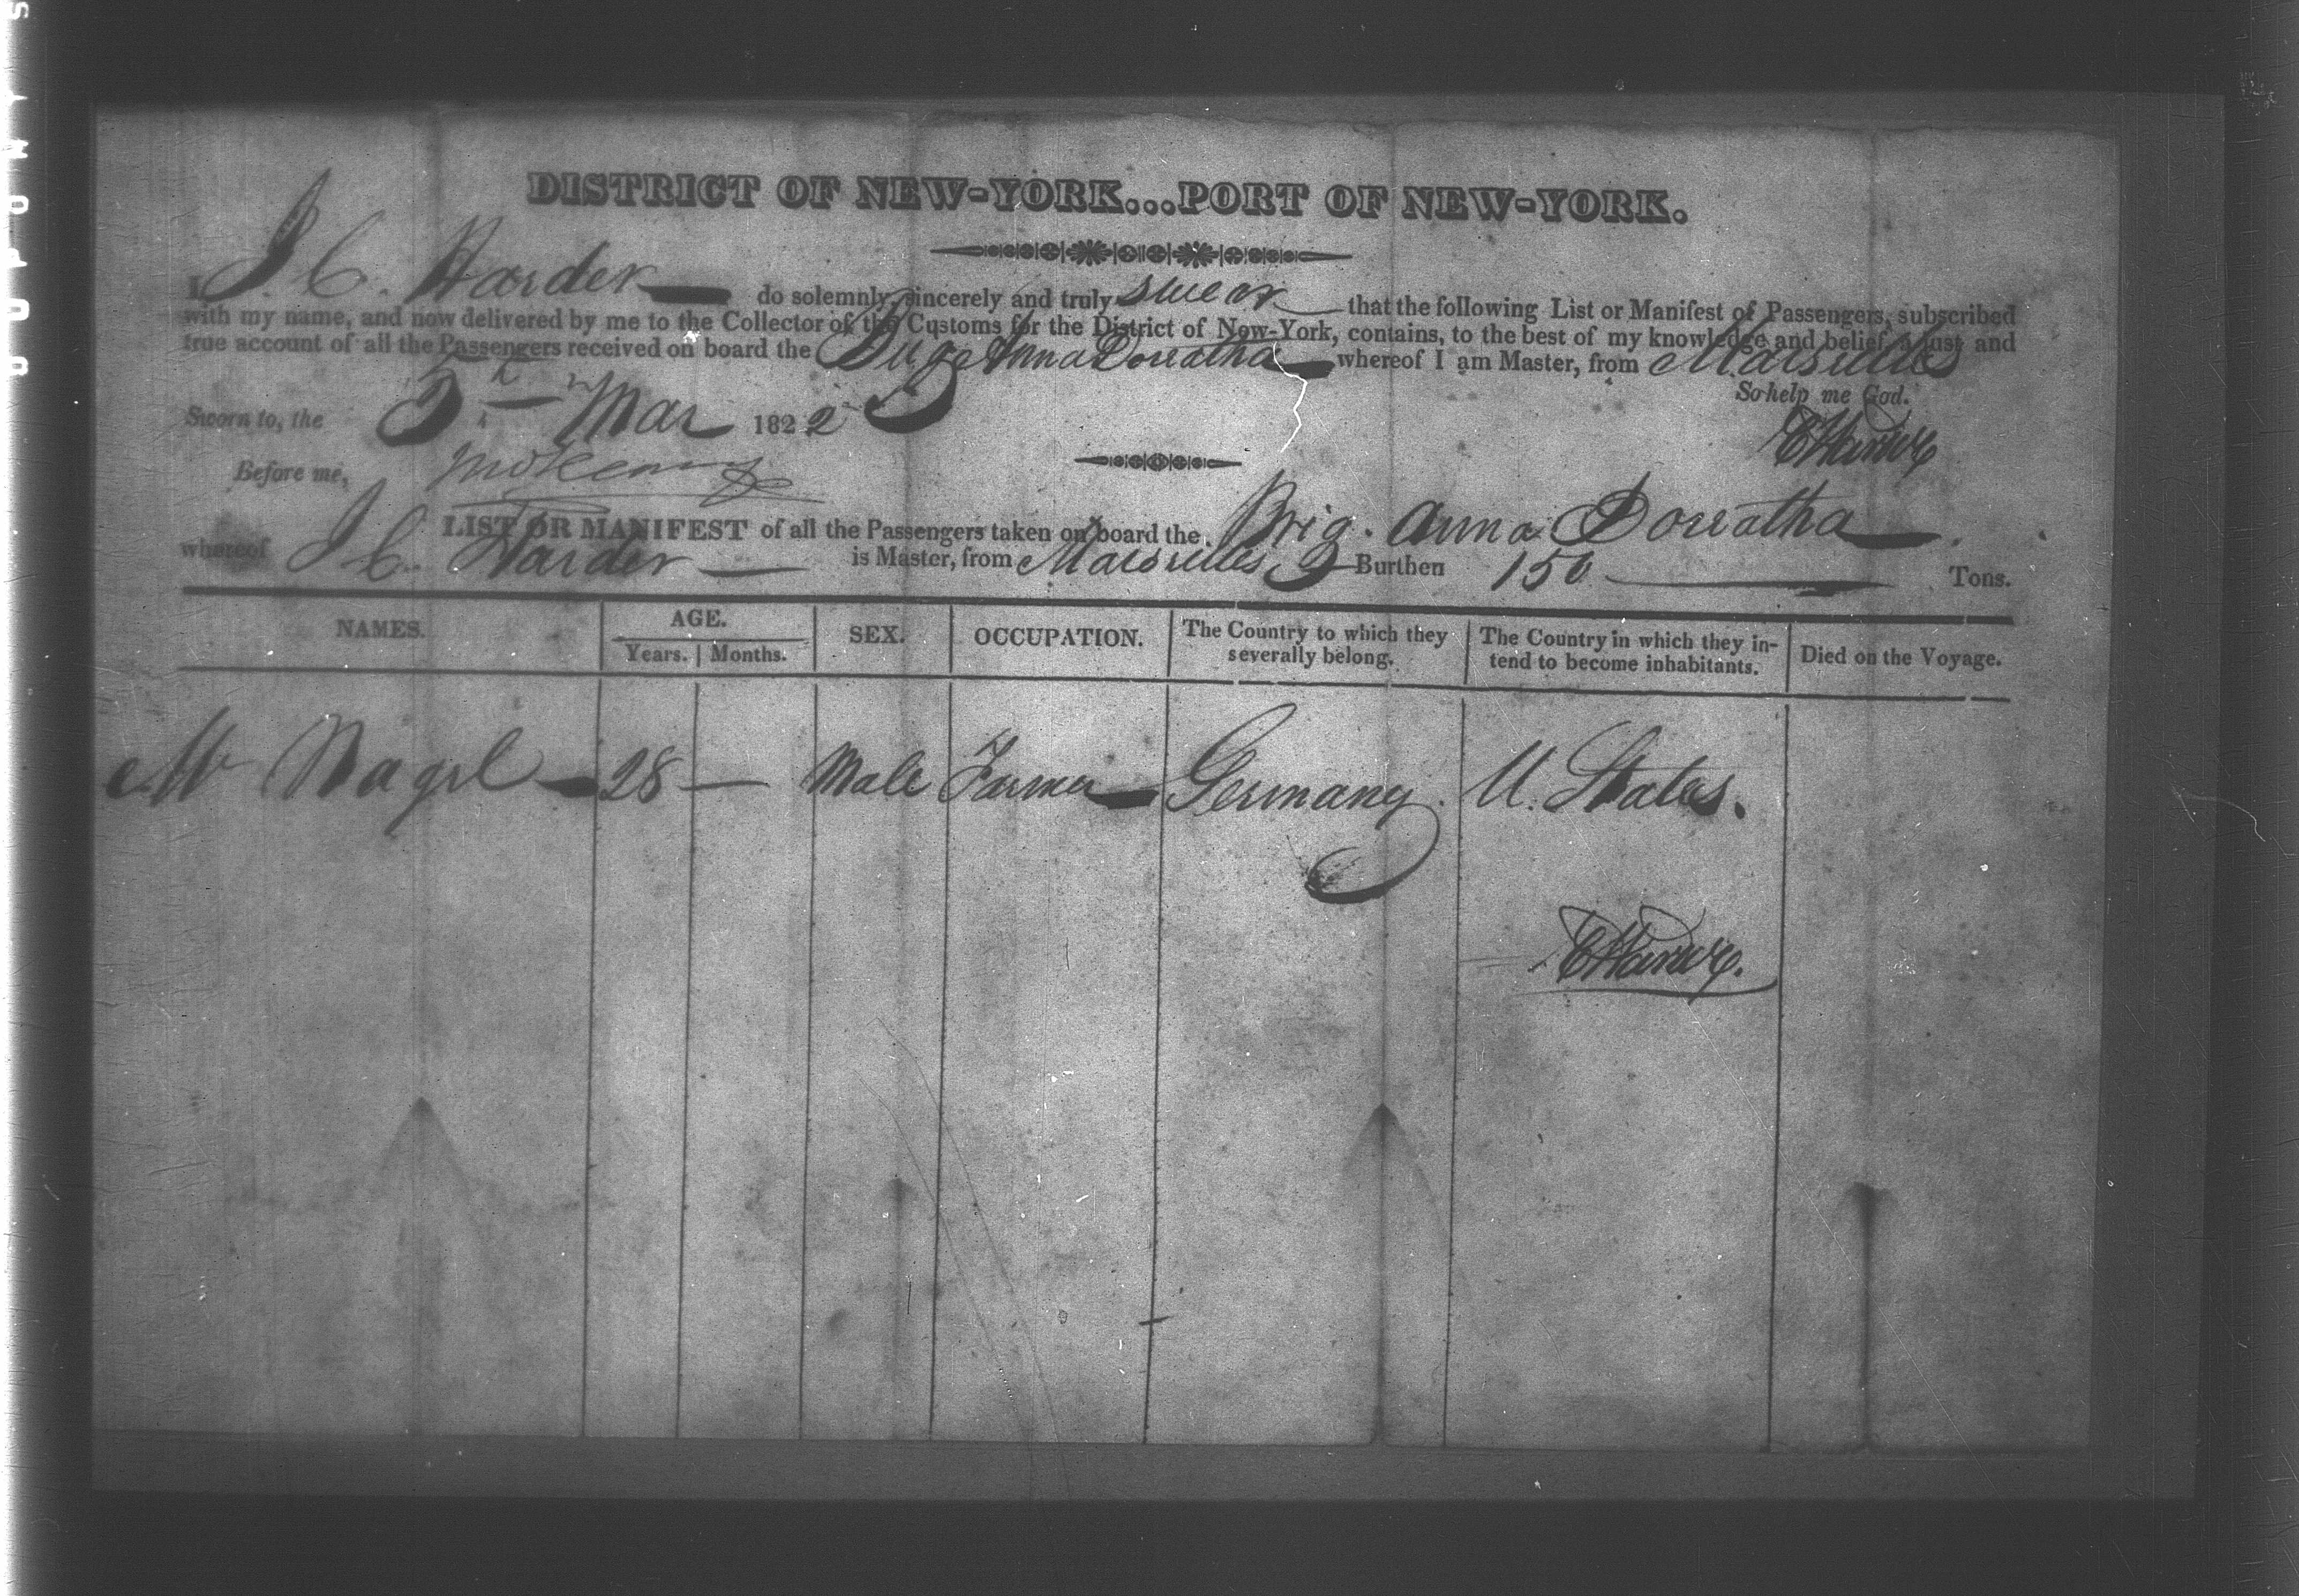 DISTRICT OF NEW-YORK...PORT OF NEW-YORK.
I J. C. Harder do solemnly, sincerely and truly swear that the following List or Manifest of Passengers, subscribed
with my name, and now delivered by me to the Collector of the Customs for the District of New-York, contains, to the best of my knowledge and belief, a just and
true account of all the Passengers received on board the Brig Anna Dorratha whereof I am Master, from Marseilles
So help me God.
Sworn to, the 5th Mar 1822
Before me,
LIST OR MANIFEST of all the Passengers taken on board the Brig. Anna Dorratha
whereof J. C. Harder is Master, from Marseilles Burthen 150 Tons.
NAMES. AGE. SEX. OCCUPATION. The Country to which they severally belong. The Country in which they in-tend to become inhabitants. Died on the Voyage.
Years. Months.
Mr Nagel 28 — Male Farmer Germany. U. States.